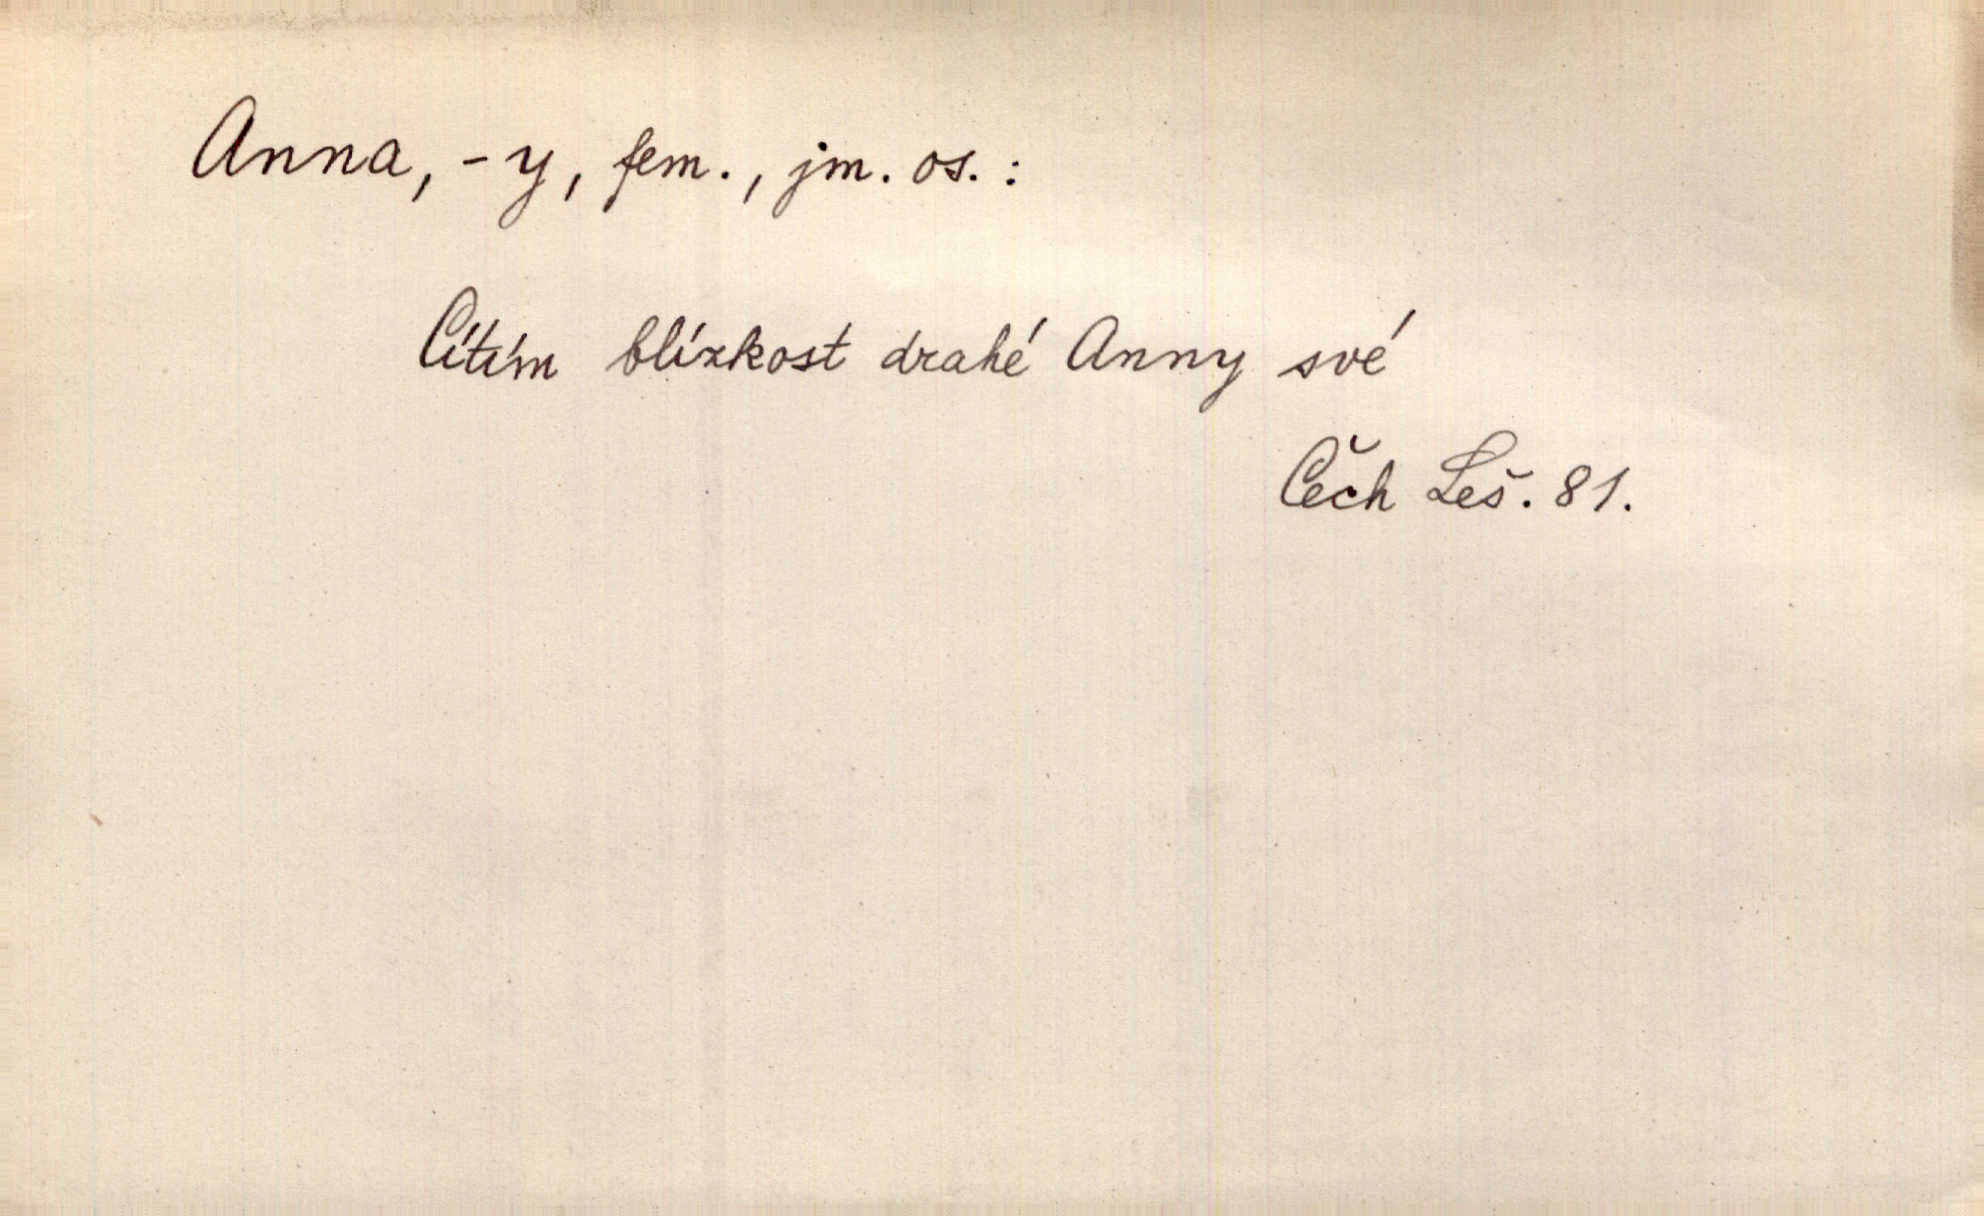 Anna, -y, fem., jm. os.:
Cítím blízkost drahé Anny své
Čech Leš. 81.